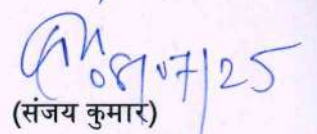 08/07/25
(संजय कुमार)